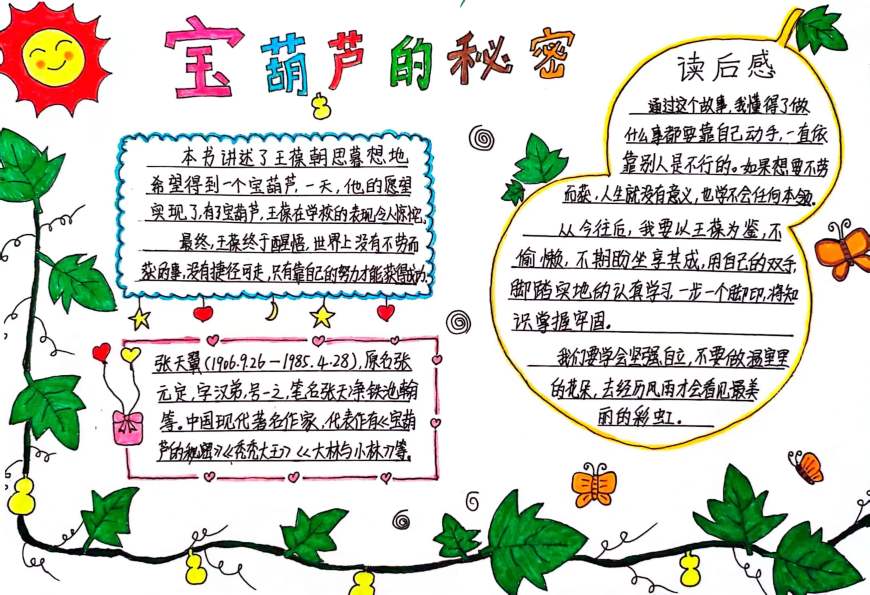 宝葫芦的秘密
本书讲述了王葆朝思暮想地
希望得到一个宝葫芦,一天,他的愿望
实现了,有了宝葫芦,王葆在学校的表现令人惊诧。
最终,王葆终于醒悟,世界上没有不劳而
获的事,没有捷径可走,只有靠自己的努力才能获得成功。
张天翼(1906.9.26-1985.4.28),原名张
元定,字汉弟,号一之,笔名张天净、铁池翰
等。中国现代著名作家,代表作有《宝葫
芦的秘密》《秃秃大王》《大林与小林》等。
读后感
通过这个故事,我懂得了做
什么事都要靠自己动手,一直依
靠别人是不行的。如果想要不劳
而获,人生就没有意义,也学不会任何本领。
从今往后,我要以王葆为鉴,不
偷懒,不期盼坐享其成,用自己的双手,
脚踏实地的认真学习,一步一个脚印,将知
识掌握牢固。
我们要学会坚强自立,不要做温室里
的花朵,去经历风雨才会看见最美
丽的彩虹。